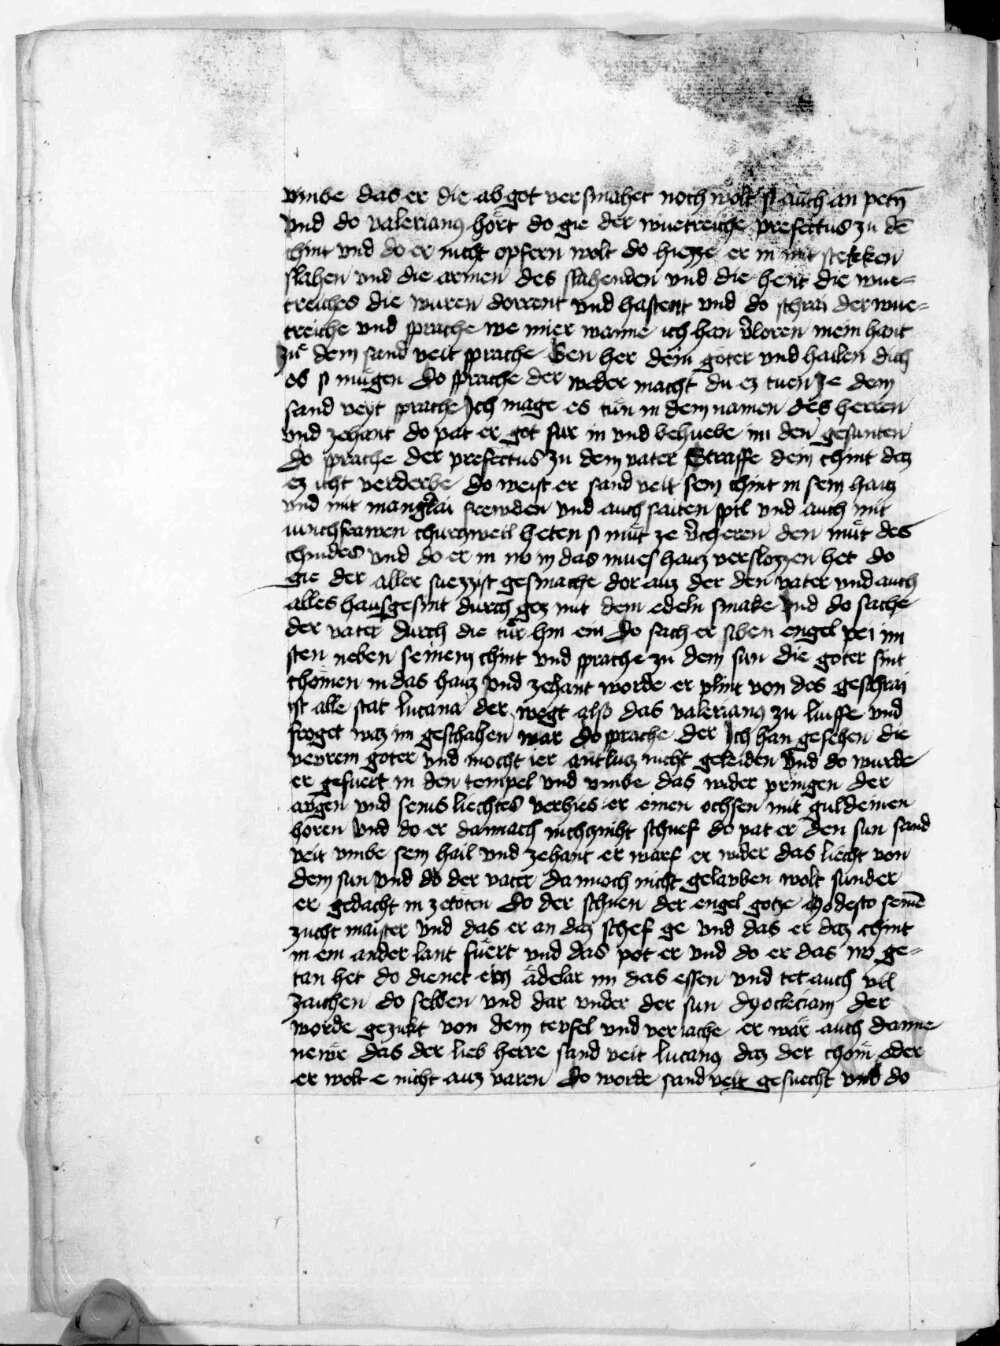 vmbe das er die abgot versmahet noch wolt si auch an peten
vnd do valerianus hört do gie der wuetreiche prefectus zu dē
chint vnd do er nicht opfern wolt do hiezze er in mit stekken
slahen vnd die armen des slahenden vnd die hent die wue-
treiches die wuren dorrent vnd do schrai der wue-
treiche vnd sprache we mier wanne ich han v̄loren mein hant
zuͤ dem sand veit sprache Gen her dein goter vnd hailen dich
ob si muͤgen Do sprache der weder macht du ez tuen ze dem
sand veyt sprache Ich mage es tuͤn in dem namen des herren
vnd zehant do pat er got fur in vnd behuebe im den gesunten
Do sprache der prefectus zu dem vater Straffe dein chint daz
ez icht verderbe do weist er sand veit sein chint in sein hauz
vnd mit manglai frewden vnd auch saiten spil vnd auch mit
iunchfrawen churczweil heten si muͤt ze v̄cheren den muͤt des
chindes vnd do er in no in das mues hauz verslozzen het do
gie der aller suezzist gesmache dor auz der den vater vnd auch
alles hausgesint durch goz mit dem edeln smake vnd do sache
der vater durch die tuͤr hin ein Do sach er siben engel pei im
sten neben seinem chint vnd sprache zu dem sun die goter sint
chomen in das hauz vnd zehant worde er plint von des geschrai
ist alle stat lucana der wegt also das valerianus zu luffe vnd
froget waz im geschahen war Do sprache der Ich han gesehen die
vevrein goter vnd mocht ier antluz nicht geleiden vnd do wurde
er gefuert in den tempel vnd vmbe das wider pringen der
avgen vnd seins liechtes verhies er einen ochsen mit guldeinen
horen vnd do er darnach nichczniht schuef do pat er den sun sand
veit vmbe sein hail vnd zehant er warf er wider das liecht von
dem sun vnd do der vater dannoch nicht gelavben wolt sunder
er gedacht in zetoten Do der schien der engel gotze Modesto seinē
zucht maister vnd das er an daz schef ge vnd das er daz chint
in ein ander lant fuͤert vnd das pot er vnd do er das no ge-
tan het do dienet ein ädelar im das essen vnd tet auch vil
zaichen do selben vnd dar vnder der sun dyocleciani der
worde gezukt von dem tevfel vnd veriache er wär auch danne
newr das der lieb herre sand veit lucanus daz der chom oder
er wolt e nicht auz varen Do worde sand veit gesuecht vnd do